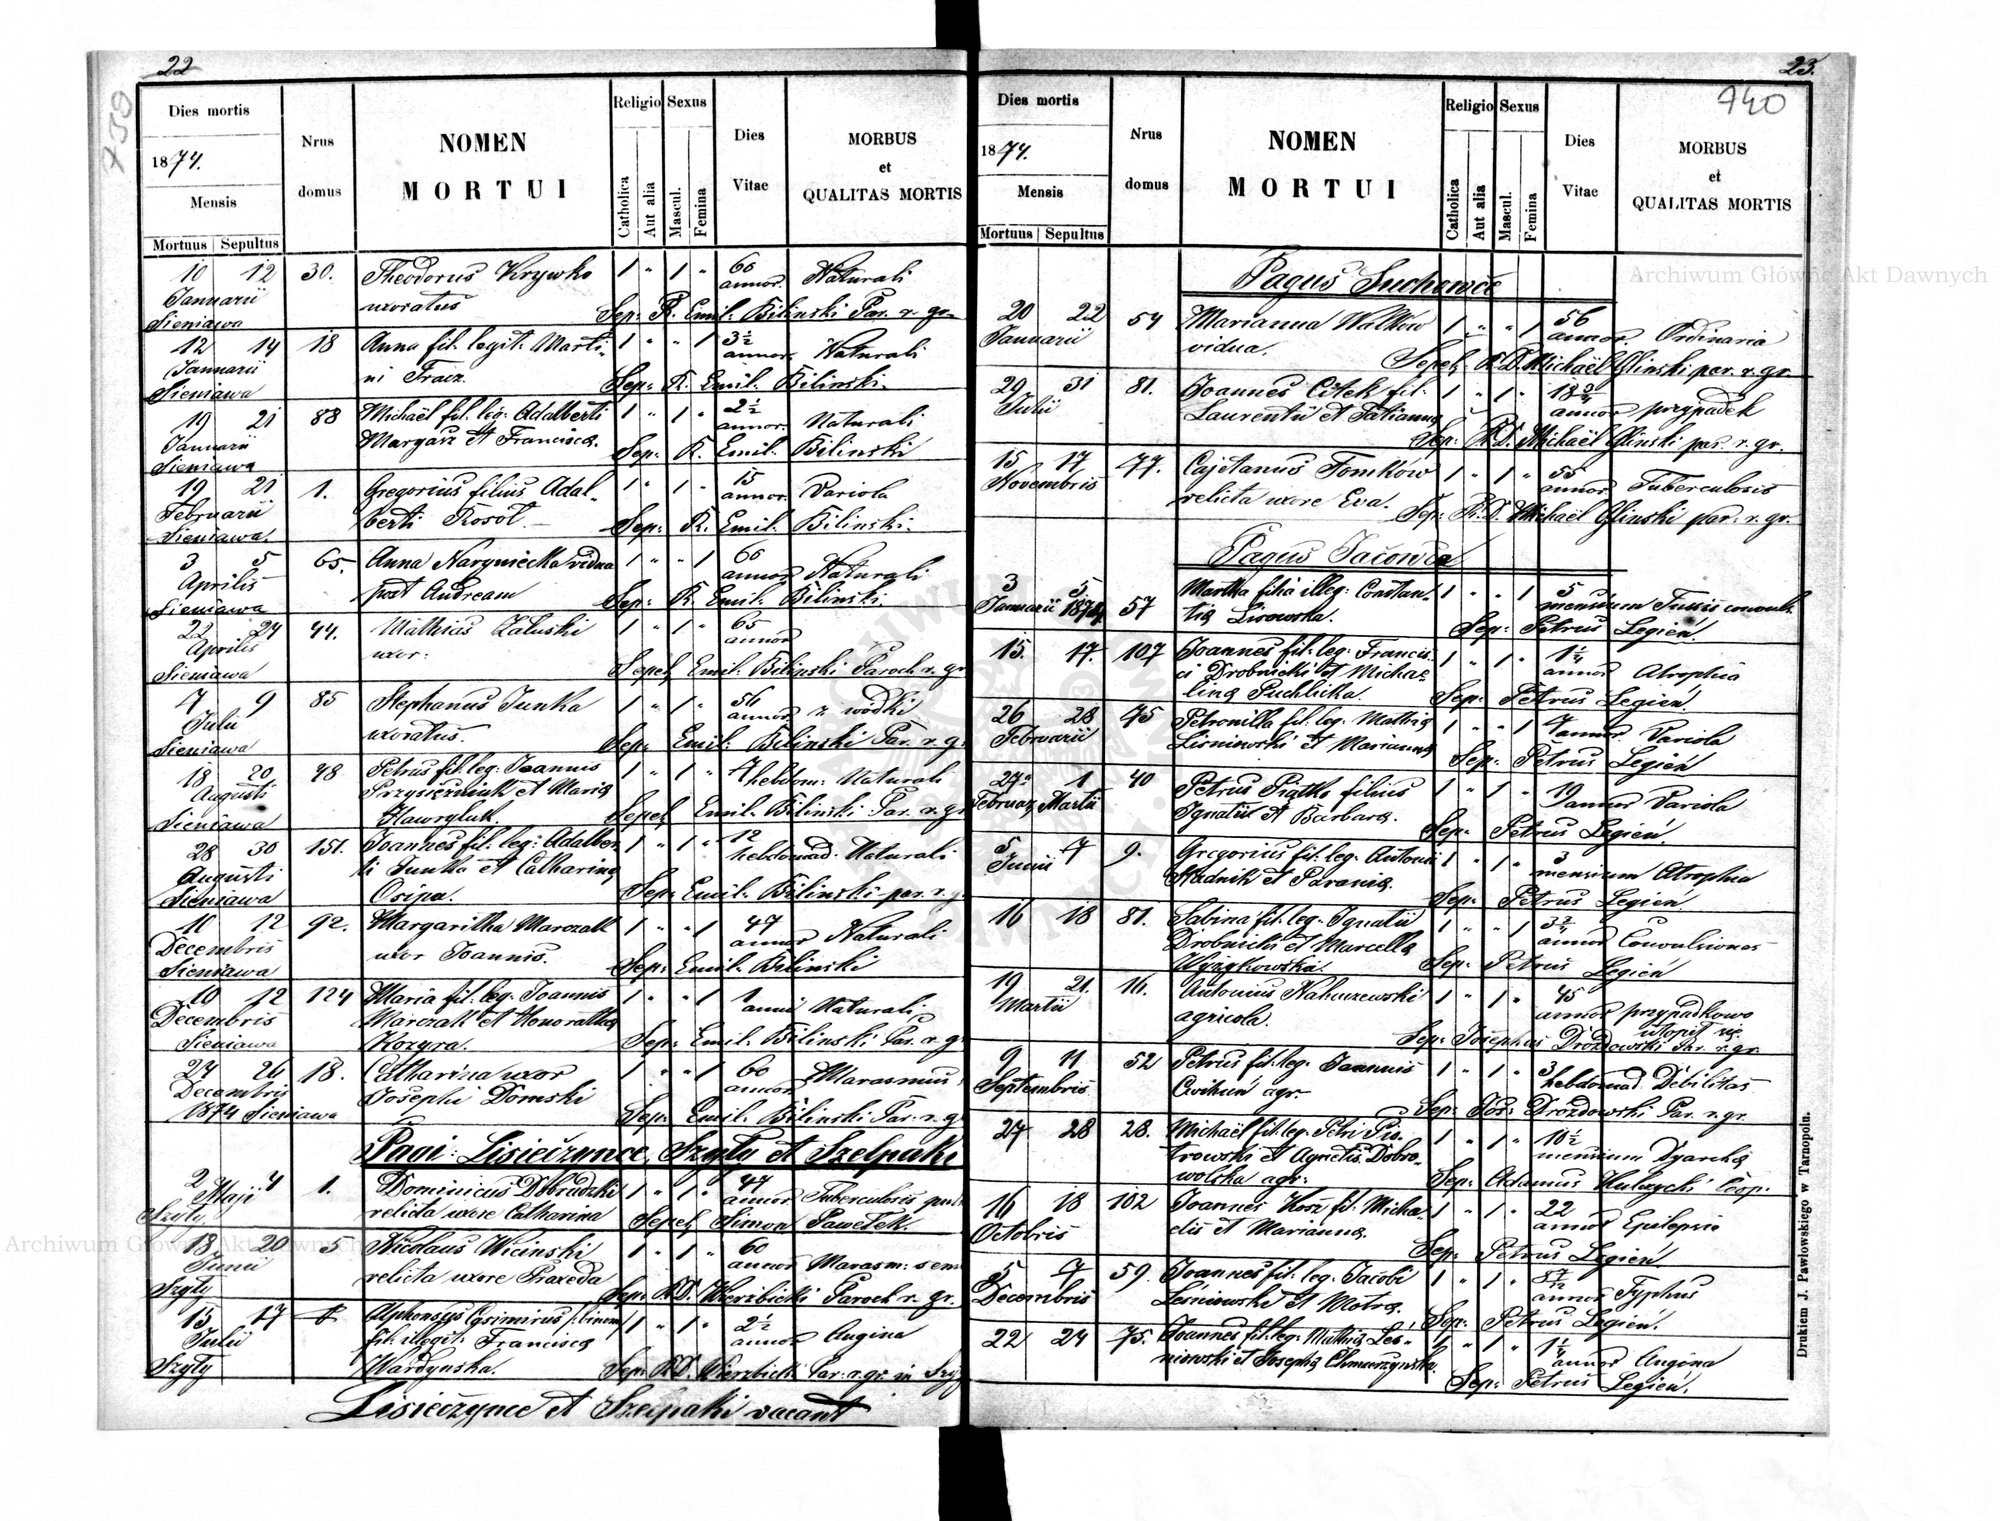 22
739
Dies mortis
1874.
Mensis
Mortuus Sepultus
Nrus domus
NOMEN
MORTUI
Religio
Catholica
Aut alia
Sexus
Mascul.
Femina
Dies
Vitae
MORBUS
et
QUALITAS MORTIS
10 12 30. Theodorus Krywko 1 " 1 " 60
Januarii uxoratus annor. Naturali
Sieniawa Sep: R. Emil: Bilinski Par. r. gr.
12 14 18 Anna fil. legit: Marti- 1 " " 1 3½
Januarii ni Tracz. annor. Naturali
Sieniawa Sep: R. Emil: Bilinski.
19 21 88 Michaël fil. leg: Adalberti 1 " 1 " 2½
Januarii Margasz et Francisca. annor. Naturali
Sieniawa Sep: R. Emil: Bilinski
19 21 1. Gregorius filius Adal- 1 " 1 " 15
Februarii berti Kosół. annor. Variola
Sieniawa. Sep: R. Emil: Bilinski.
3 5 65. Anna Narywiecka vidua 1 " " 1 60
Aprilis post Andream annor. Naturali
Sieniawa Sep: R. Emil: Bilinski.
22 24 44. Mathias Załuski 1 " 1 " 65
Aprilis uxor: annor.
Sieniawa Sepel. Emil: Bilinski Paroch r. gr.
7 9 85 Stephanus Junka 1 " 1 " 56
Julii uxoratus. annor. z wódki
Sieniawa Sep: Emil: Bilinski Par. r. g.
18 20 48 Petrus fil: leg: Joannis 1 " 1 " 7
Augusti Przysiężniuk et Maria hebdom: Naturali
Sieniawa Hawryluk. Sepel. Emil: Bilinski Par. r. gr
28 30 151. Joannes fil: leg: Adalber 1 " 1 " 12
Augusti ti Junka et Catharina hebdomad. Naturali
Sieniawa Osipa. Sep: Emil: Bilinski par. r. g.
10 12 92. Margaritha Marczak 1 " " 1 47
Decembris uxor Joannis. annor Naturali
Sieniawa Sep: Emil: Bilinski
10 12 124 Maria fil: leg: Joannis 1 " " 1 1
Decembris Marczak et Honoratha anni Naturali
Sieniawa Kozyra. Sep: Emil: Bilinski Par. r. g.
24 26 18. Catharina uxor 1 " " 1 60
Decembris Josephi Domski annor. Marasmus
1874 Sieniawa Sep: Emil: Bilinski Par. r. g
Pagi: Lisieczynce, Szyły et Szelpaki
2 4 1. Dominicus Dobrudzki 1 " 1 " 47
Maji relicta uxore Catharina annor Tuberculosis
Szyły Sepel. Simon Pawełek.
18 20 5 Nicolaus Wicinski 1 " 1 " 60
Junii relicta uxore Praxeda annor Marasm: sen
Szyły Sep. R.D. Wierzbicki Paroch r. gr.
15 17 Alphonsus Casimirus 1 " 1 " 2½
Julii fil. illegit: Francisca annor Angina
Szyły Wardynska. Sep. R.D. Wierzbicki Par. r. gr. in Szy
Lisieczynce et Szelpaki vacant
23.
740
Dies mortis
1874.
Mensis
Mortuus Sepultus
Nrus domus
NOMEN
MORTUI
Religio
Catholica
Aut alia
Sexus
Mascul.
Femina
Dies
Vitae
MORBUS
et
QUALITAS MORTIS
Pagus Suchowce
20 22 54 Marianna Walków 1 " " 1 56
Januarii vidua. annor. Ordinaria
Sepel. R.D. Michaël Glinski par. r. gr.
29 31 81. Joannes Citek fil. 1 " 1 " 18
Julii Laurentii et Tatianna annor przypadek
Sep: R.D. Michaël Glinski par. r. gr.
15 17 77. Cajetanus Tomków 1 " 1 " 55
Novembris relicta uxore Eva. annor. Tuberculosis
Sep: R.D. Michaël Glinski par. r. gr.
Pagus Jacowce
3 5 57 Martha filia illeg: Constan- 1 " " 1 5
Januarii 1874 tia Lisowska. mensium Tussis convuls.
Sep: Petrus Legień.
15. 17. 107 Joannes fil: leg: Francis- 1 " 1 " 1¼
ci Drobnicki et Micha- annor Atrophia
lina Puchlicka. Sep: Petrus Legień.
26 28 45 Petronilla fil: leg: Mathia 1 " " 1 7
Februarii Liśniewski et Marianna annor. Variola
Sep: Petrus Legień
27 1 40 Petrus Piątko filius 1 " 1 " 19
Februar. Martii Ignatii et Barbara. annor Variola
Sep: Petrus Legień.
5 7 9. Gregorius fil: leg: Antonii 1 " 1 " 3
Junii Stadnik et Parania. mensium Atrophia
Sep: Petrus Legień.
16 18 81. Sabina fil: leg: Ignatii 1 " " 1
Drobnicki et Marcella annor Convulsiones
Wyżykowska. Sep: Petrus Legień
19 21. 16. Antonius Nahuszewski 1 " 1 " 45
Martii agricola. annor przypadkowo
utopił się
Sep: Josephus Drozdowski Par. r. gr.
9 11 52 Petrus fil: leg: Joannis 1 " 1 " 3
Septembris Cwihuń agr. hebdomad. Debilitas
Sep: Jos: Drozdowski Par. r. gr.
27 28 28. Michaël fil: leg: Petri Pio- 1 " 1 " 10½
trowski et Agnetis Dobro- mensium Dyarhea
wolska agr: Sep: Adamus Kulzycki Coop.
16 18 102 Joannes Kosz fil: Micha- 1 " 1 " 22
Octobris elis et Marianna. annor Epilepsia
Sep: Petrus Legień.
5 7 59. Joannes fil: leg: Jacobi 1 " 1 " 5
Decembris Leśniowski et Motra. annor Typhus
Sep: Petrus Legień.
22 24 75. Joannes fil: leg: Mathia Leś- 1 " 1 " 1¼
niowski et Josepha Chmurzynska. annor Angina
Sep: Petrus Legień.
Drukiem J. Pawłowskiego w Tarnopolu.
Archiwum Główne Akt Dawnych
Archiwum Główne Akt Dawnych